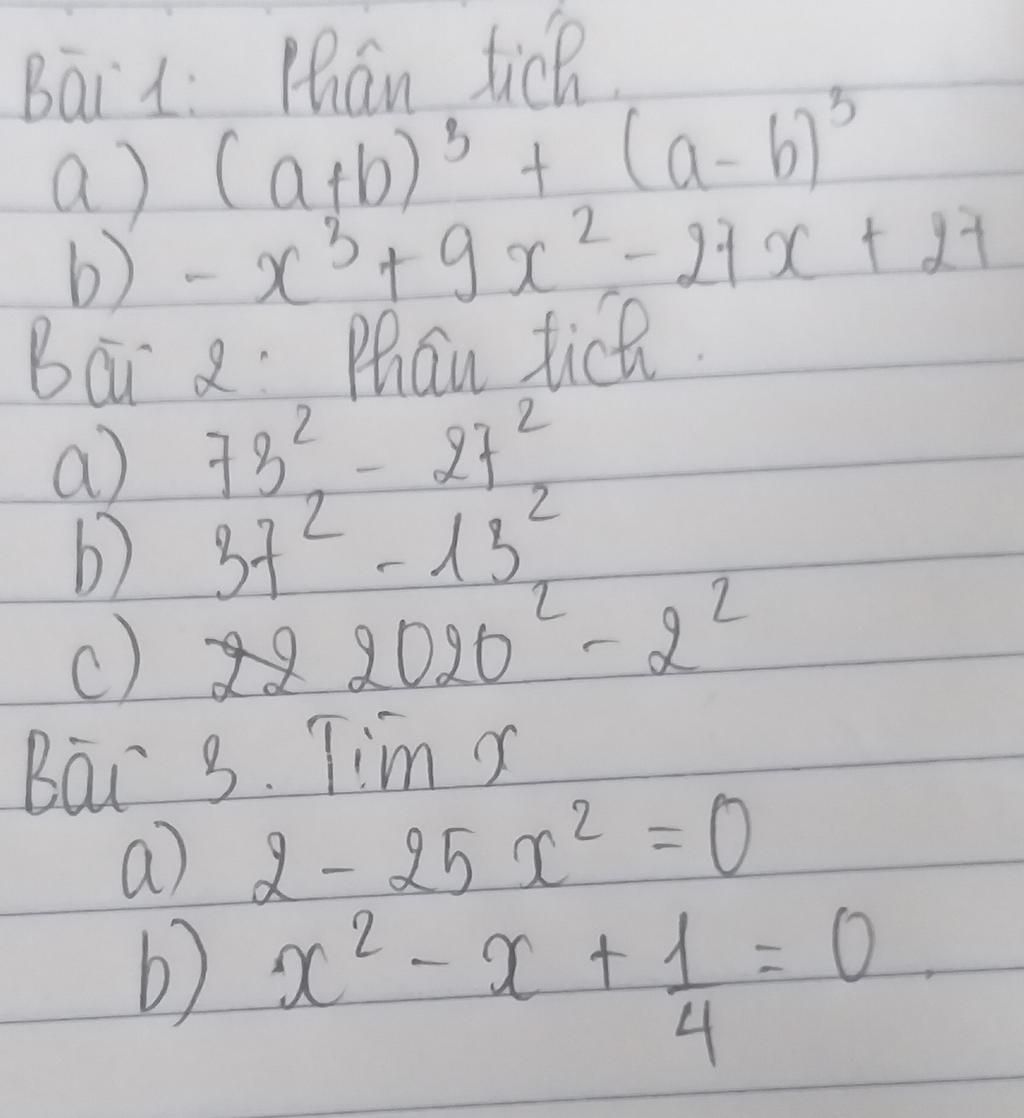 Bài 1: Phân tích.
a) (a+b)³ + (a-b)³
b) - x³ + 9x² - 27x + 27
Bài 2: Phân tích.
a) 73² - 27²
b) 37² - 13²
c) 2020² - 2²
Bài 3. Tìm x
a) 2 - 25x² = 0
b) x² - x + 1/4 = 0.